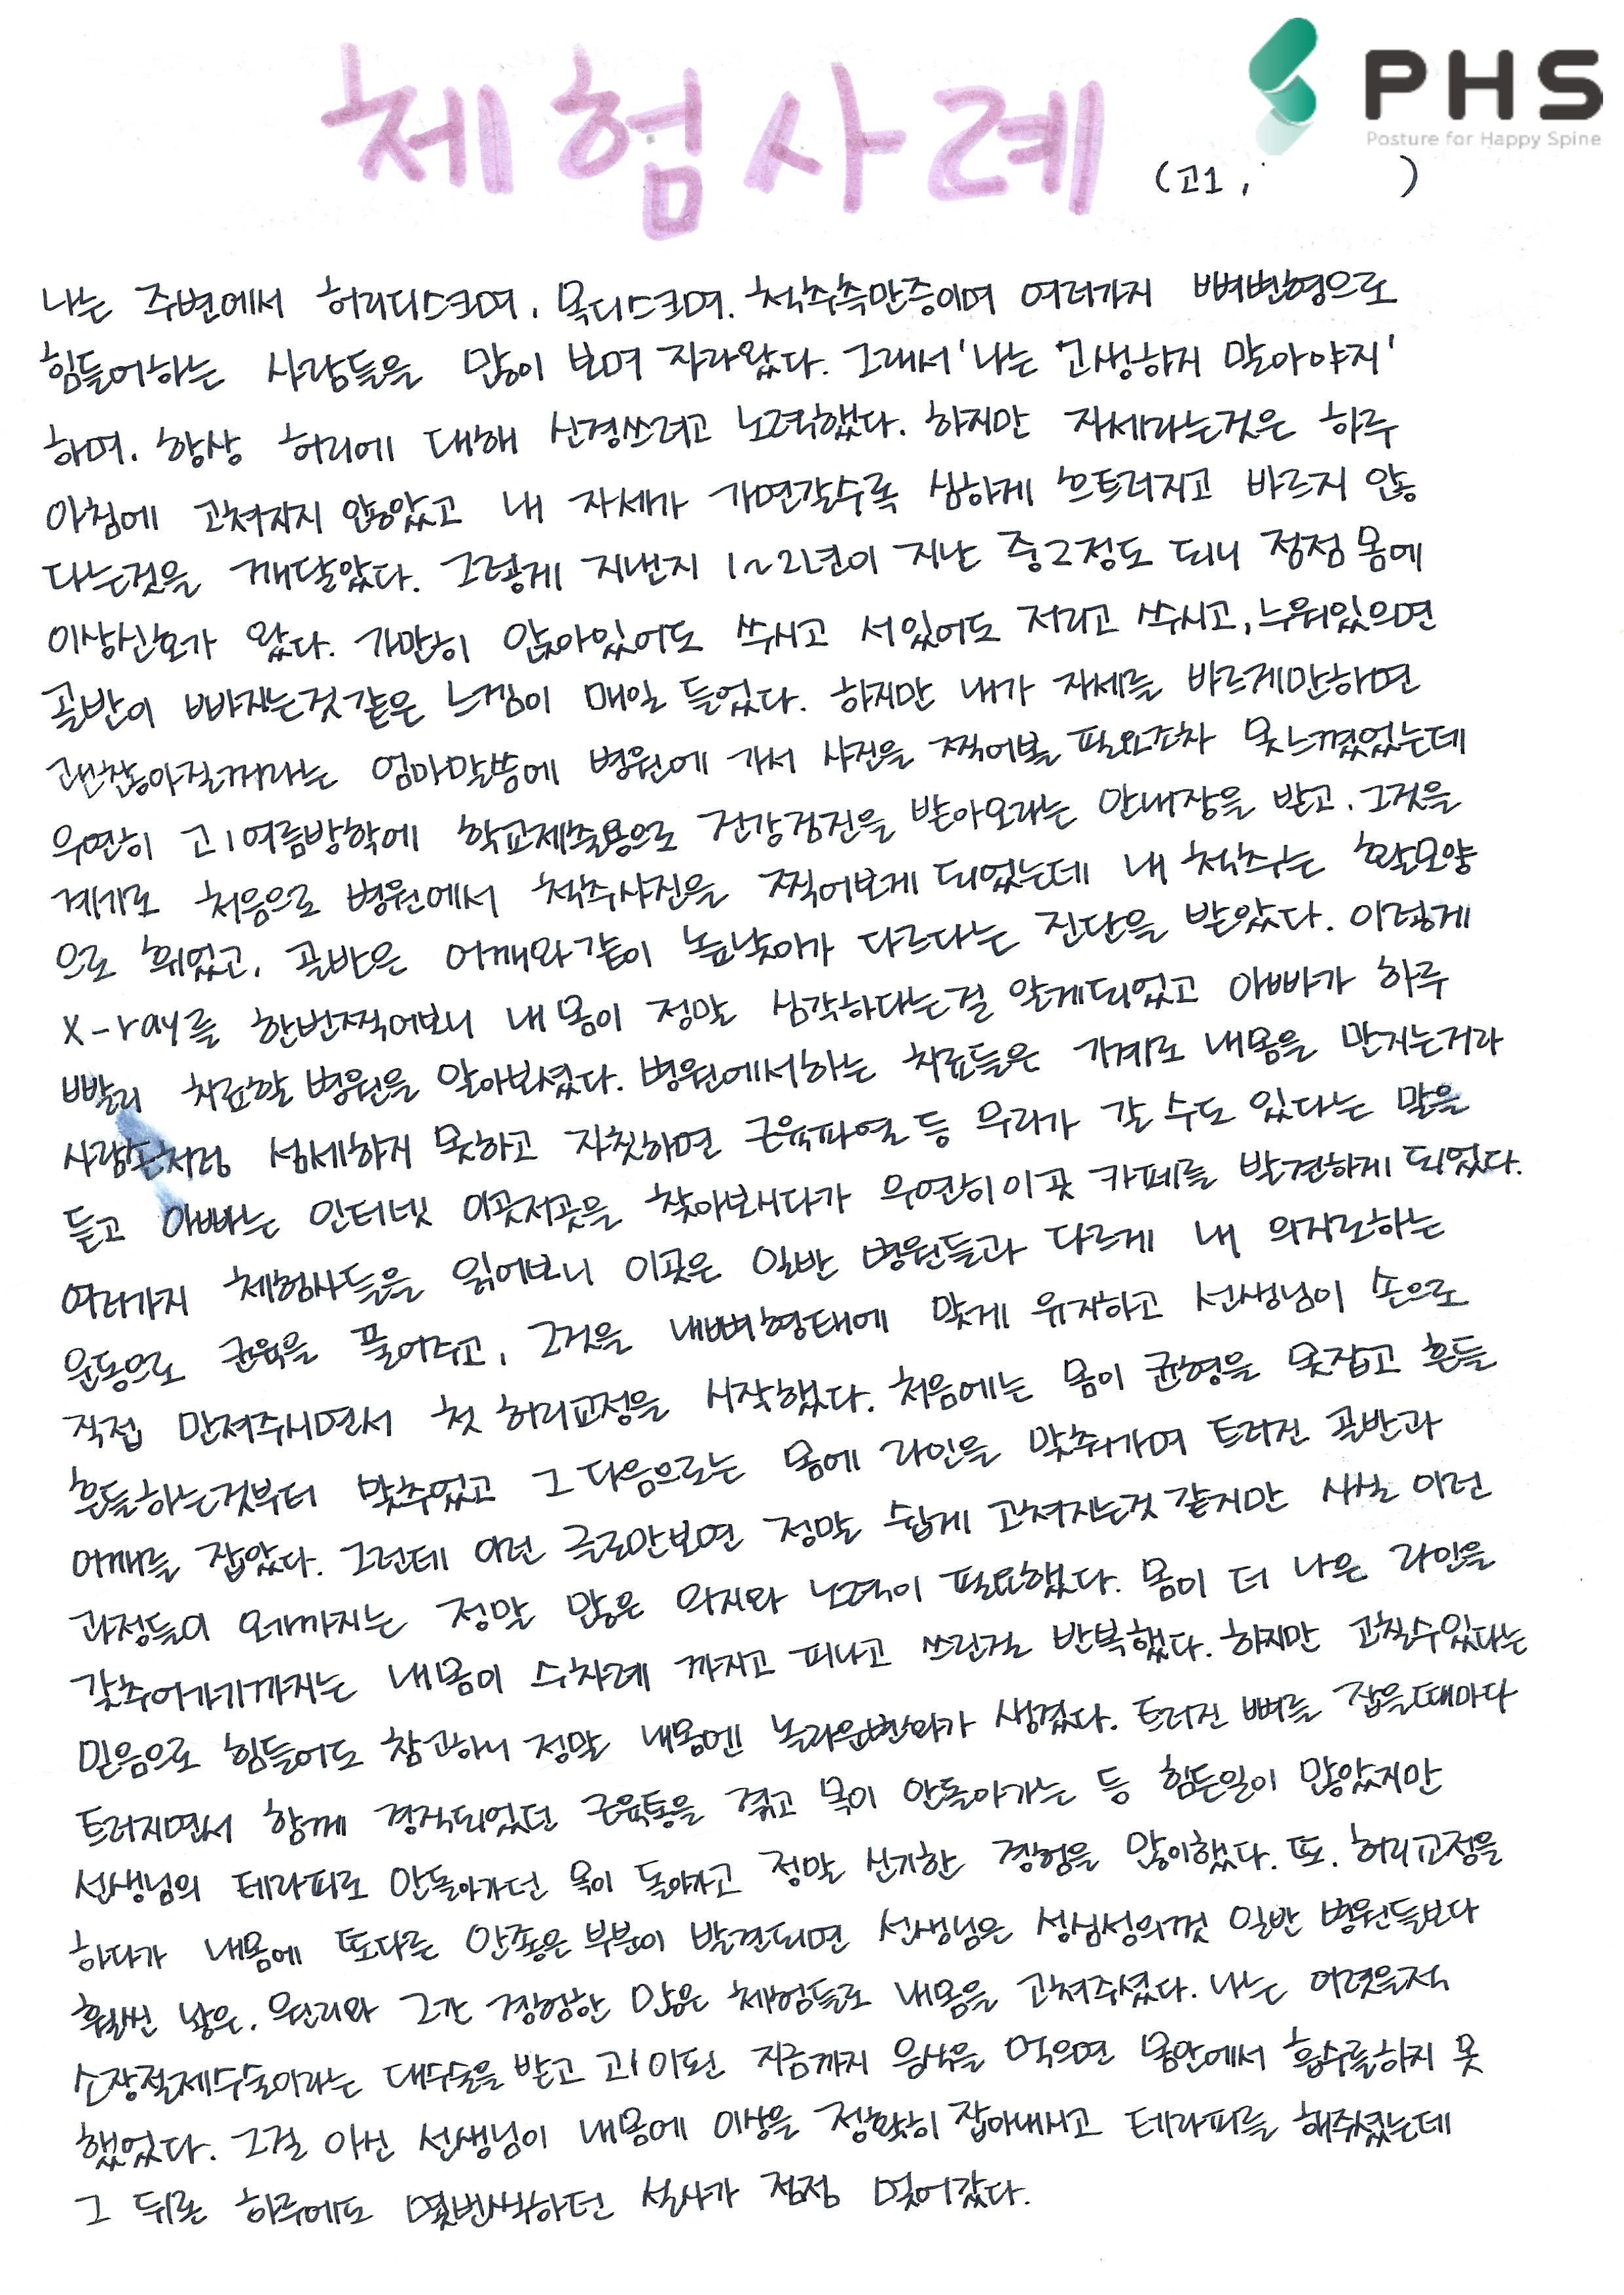 체험사례
PHS
Posture for Happy Spine
(고1, )
나는 주변에서 허리디스크며, 목디스크며. 척추측만증이며 여러가지 뼈변형으로
힘들어하는 사람들을 많이 보며 자라왔다. 그래서 '나는 고생하지 말아야지'
하며. 항상 허리에 대해 신경쓰려고 노력했다. 하지만 자세라는것은 하루
아침에 고쳐지지 않았고 내 자세가 가면갈수록 심하게 흐트러지고 바르지 않
다는것을 깨달았다. 그렇게 지낸지 1~2년이 지난 중2정도 되니 점점 몸에
이상신호가 왔다. 가만히 앉아있어도 쑤시고 서있어도 저리고 쑤시고, 누워있으면
골반이 빠지는것같은 느낌이 매일 들었다. 하지만 내가 자세를 바르게만하면
괜찮아질꺼라는 엄마말씀에 병원에 가서 사진을 찍어볼 필요조차 못느꼈었는데
우연히 고1여름방학에 학교제출용으로 건강검진을 받아오라는 안내장을 받고. 그것을
계기로 처음으로 병원에서 척추사진을 찍어보게 되었는데 내 척추는 활모양
으로 휘었고, 골반은 어깨와같이 높낮이가 다르다는 진단을 받았다. 이렇게
X-ray를 한번찍어보니 내 몸이 정말 심각하다는걸 알게되었고 아빠가 하루
빨리 치료할 병원을 알아보셨다. 병원에서하는 치료들은 기계로 내몸을 만지는거라
사람손처럼 섬세하지 못하고 자칫하면 근육파열 등 무리가 갈 수도 있다는 말을
듣고 아빠는 인터넷 이곳저곳을 찾아보시다가 우연히 이곳 카페를 발견하게 되었다.
여러가지 체험사들을 읽어보니 이곳은 일반 병원들과 다르게 내 의지로하는
운동으로 근육을 풀어주고, 그것을 내뼈형태에 맞게 유지하고 선생님이 손으로
직접 만져주시면서 첫 허리교정을 시작했다. 처음에는 몸이 균형을 못잡고 흔들
흔들하는것부터 맞추었고 그 다음으로는 몸에 라인을 맞춰가며 트러진 골반과
어깨를 잡았다. 그런데 이런 글로만보면 정말 쉽게 고쳐지는것 같지만 사실 이런
과정들이 오기까지는 정말 많은 의지와 노력이 필요했다. 몸이 더 나은 라인을
갖추어가기까지는 내몸이 수차례 까지고 피나고 쓰린걸 반복했다. 하지만 고칠수있다는
믿음으로 힘들어도 참고하니 정말 내몸엔 놀라운변화가 생겼다. 트러진 뼈를 잡을때마다
트러지면서 함께 경직되었던 근육통을 겪고 목이 안돌아가는 등 힘든일이 많았지만
선생님의 테라피로 안돌아가던 목이 돌아가고 정말 신기한 경험을 많이했다. 또. 허리교정을
하다가 내몸에 또다른 안좋은 부분이 발견되면 선생님은 성심성의껏 일반 병원들보다
훨씬 낳은. 원리와 그간 경험한 많은 체험들로 내몸을 고쳐주셨다. 나는 어렸을적
소장절제수술이라는 대수술을 받고 고1이된 지금까지 음식을 먹으면 몸안에서 흡수를하지 못
했었다. 그걸 아신 선생님이 내몸에 이상을 정확히 잡아내시고 테라피를 해주셨는데
그 뒤론 하루에도 몇번씩하던 설사가 점점 멎어갔다.